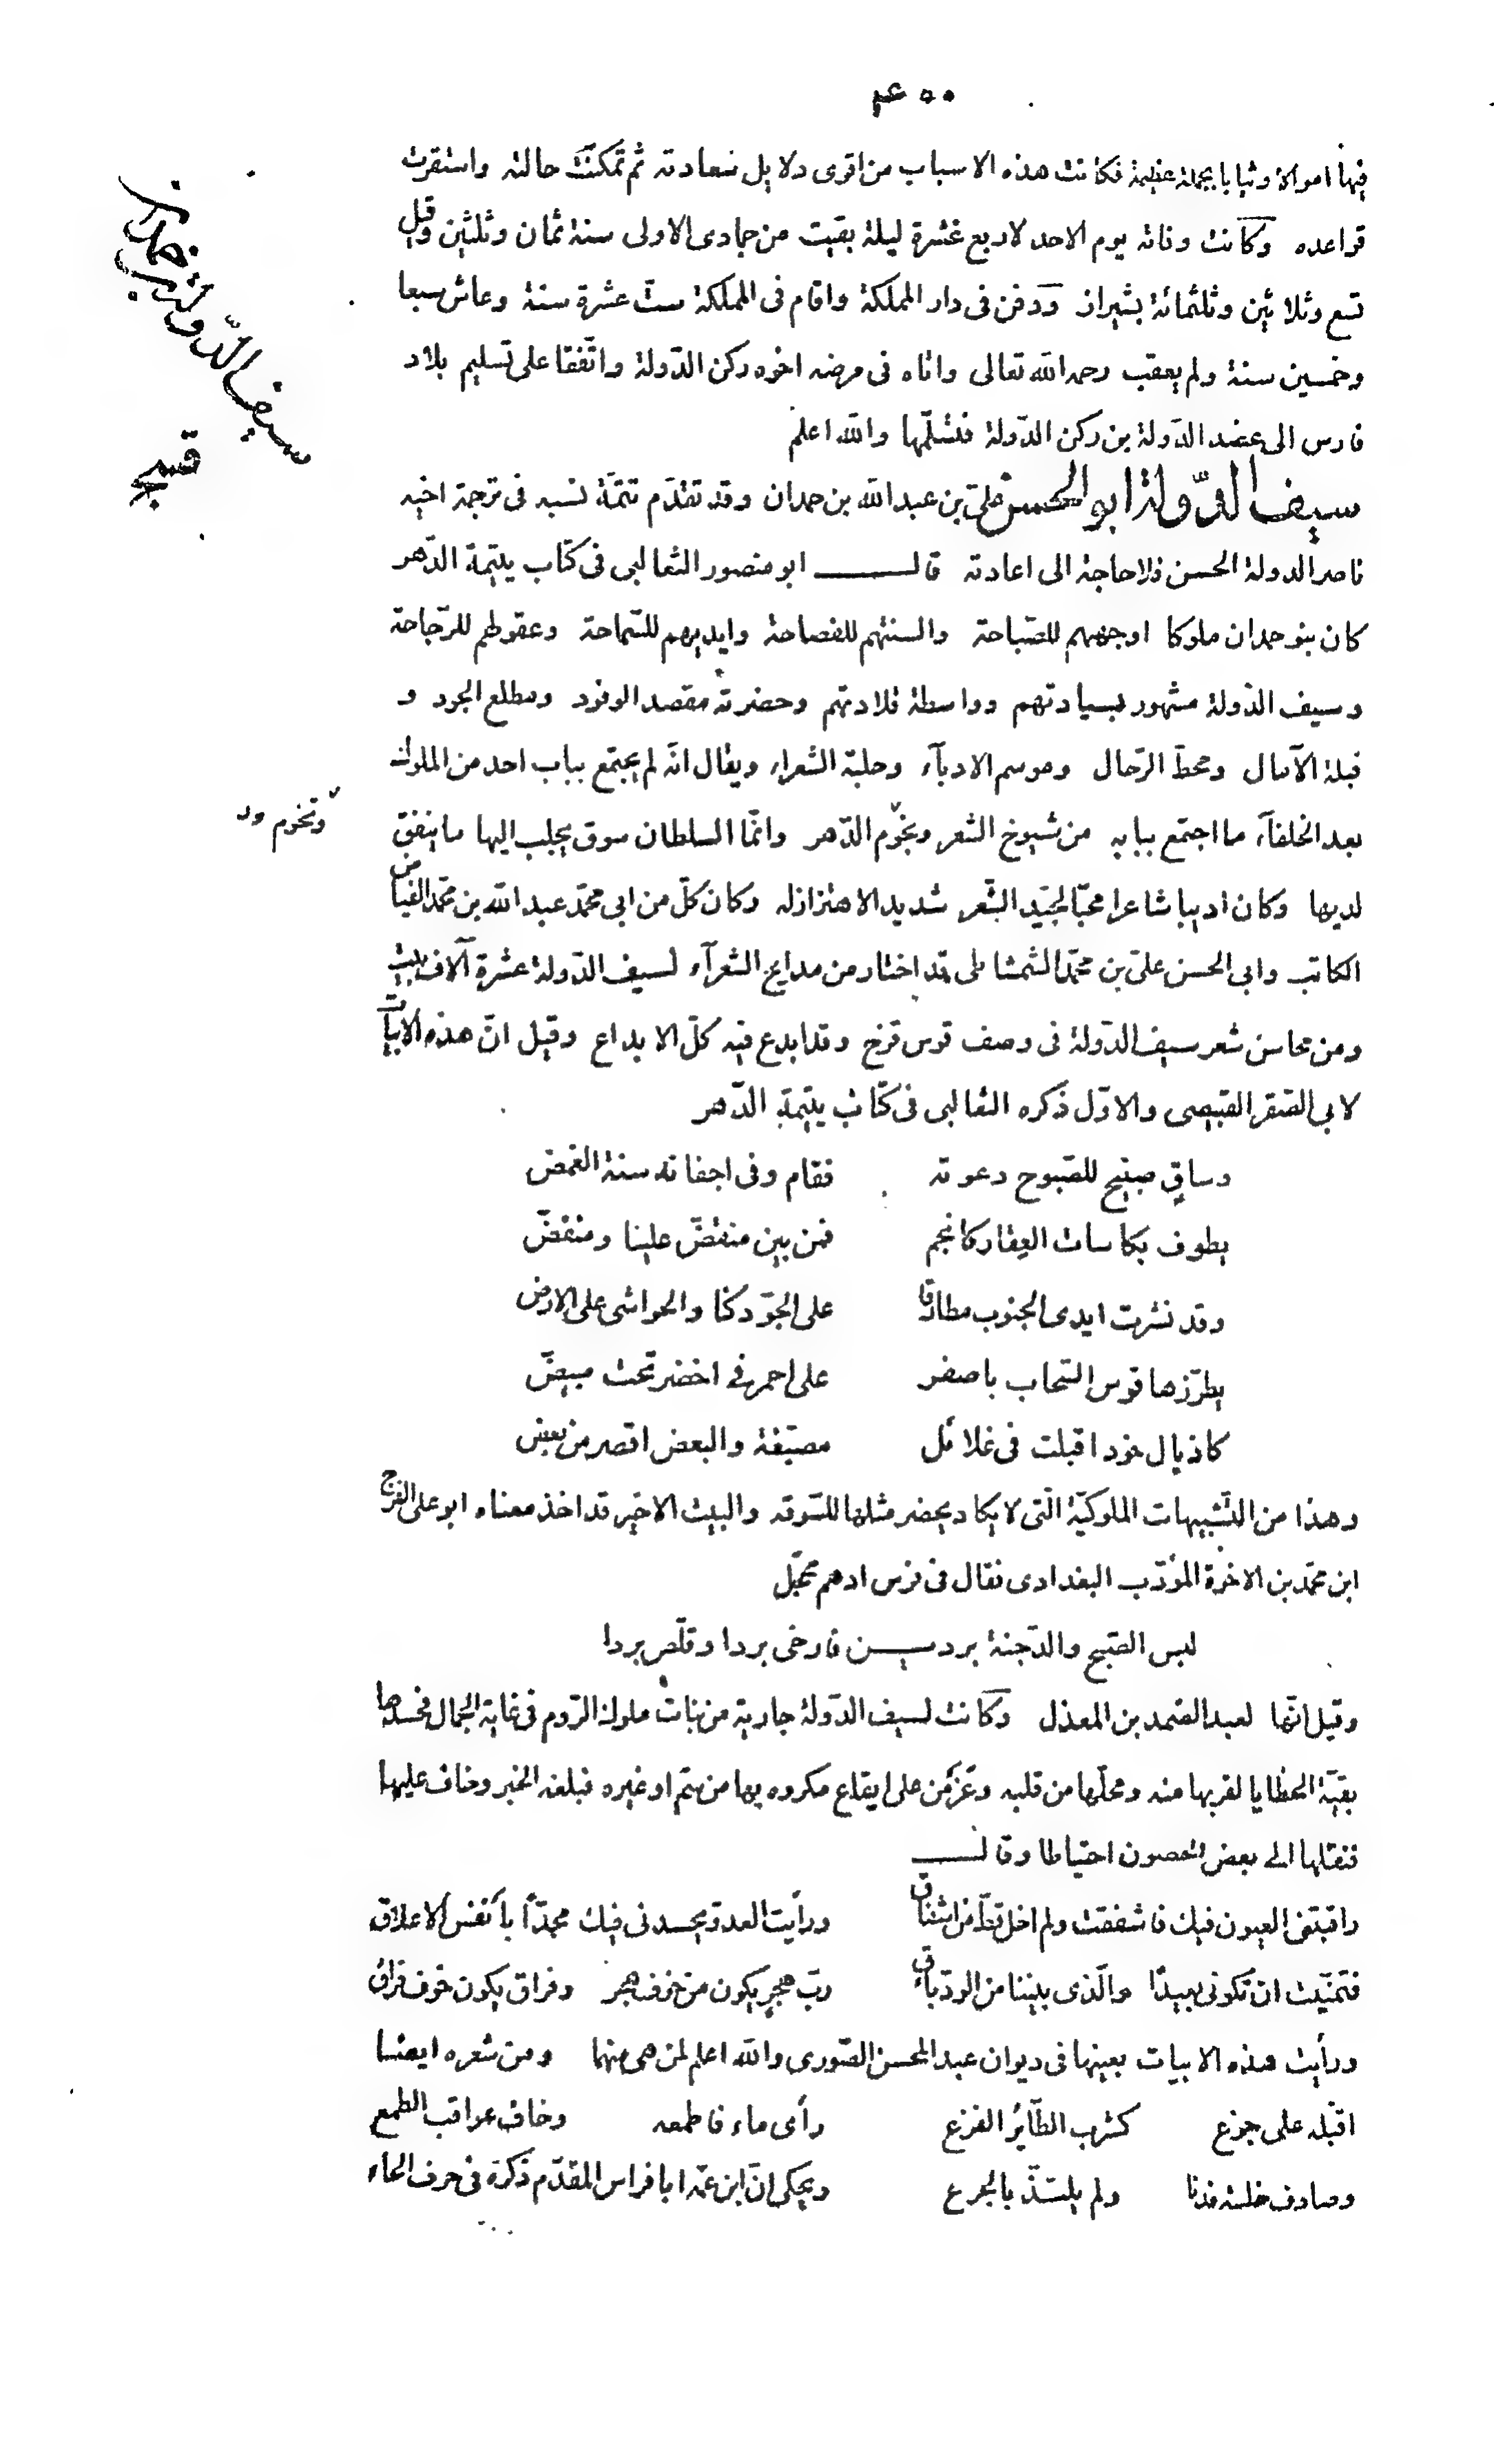 ۴۰۰
فيها اموالا وثيابا بجملة عظيمة فكانت هذه الاسباب من اقوى دلايل سعادته ثم تمكنت حالته واستقرت
قواعده وكانت وفاته يوم الاحد لاربع عشرة ليلة بقيت من جمادى الاولى سنة ثمان وثلثين وقيل
تسع وثلاثين وثلثمائة بشيراز ودفن فى دار المملكة واقام فى المملكة ستّ عشرة سنة وعاش سبعا
وخمسين سنة ولم يعقب رحمه الله تعالى واتاه فى مرضه اخوه ركن الدّولة واتّفقا على تسليم بلاد
فارس الى عضد الدّولة بن ركن الدّولة فتسلّمها والله اعلم
سيف الدّولة ابو الحسن علىّ بن عبد الله بن حمدان وقد تقدّم تتمّة نسبه فى ترجمة اخيه
ناصر الدولة الحسن فلا حاجة الى اعادته قال ابو منصور الثعالبى فى كتاب يتيمة الدّهر
كان بنو حمدان ملوكا اوجههم للصّباحة والسنتهم للفصاحة وايديهم للسّماحة وعقولهم للرّجاحة
وسيف الدّولة مشهور بسيادتهم وواسطة قلادتهم وحضرته مقصد الوفود ومطلع الجود و
قبلة الآمال ومحطّ الرّحال وموسم الادبآء وحلبة الشعراء ويقال انّه لم يجتمع بباب احد من الملوك
بعد الخلفآء ما اجتمع ببابه من شيوخ الشعر ونجوم الدّهر وانّما السلطان سوق يجلب اليها ما ينفق
لديها وكان اديبا شاعرا محبّا لجيّد الشّعر شديد الاهتزاز له وكان كلّ من ابى محمّد عبد الله بن محمّد الفيّاض
الكاتب وابى الحسن علىّ بن محمّد الشمشاطى قد اختار من مدايح الشعرآء لسيف الدّولة عشرة آلاف بيت
ومن محاسن شعر سيف الدّولة فى وصف قوس قزح وقد ابدع فيه كلّ الابداع وقيل انّ هذه الابيات
لابى الصّقر القبيصى والاوّل ذكره الثعالبى فى كتاب يتيمة الدّهر
وساقٍ صبيح للصّبوح دعوته فقام وفى اجفانه سنة الغمض
يطوف بكاسات العقار كانجم فمن بين منقضّ علينا ومنفضّ
وقد نشرت ايدى الجنوب مطارفا على الجوّ دكنا والحواشى على الارض
يطرّزها قوس السّحاب باصفر على احمر فى اخضر تحت مبيضّ
كاذيال خود اقبلت فى غلائل مصبّغة والبعض اقصر من بعض
وهذا من التّشبيهات الملوكيّة الّتى لا يكاد يحضر مثلها للسّوقه والبيت الاخير قد اخذ معناه ابو على الفرج
ابن محمّد بن الاخوة المؤدّب البغدادى فقال فى فرس ادهم محجّل
لبس الصّبح والدّجنة بردين فارخى بردا وقلّص بردا
وقيل انّها لعبد الصّمد بن المعذل وكانت لسيف الدّولة جارية من بنات ملوك الرّوم فى غاية الجمال فحسدها
بقيّة الحظايا لقربها منه ومحلّها من قلبه وعزمن على ايقاع مكروه بها من سمّ او غيره فبلغه الخبر وخاف عليها
فنقلها الى بعض الحصون احتياطا وقال
راقبتنى العيون فيك فاشفقت ولم اخل قطّ من اشفاق ورأيت العدو يحسدنى فيك مجدّاً بأنفس الاعلاق
فتمنّيت ان تكونى بعيدًا والّذى بيننا من الودّ باق ربّ هجرٍ يكون من خوف هجر وفراق يكون خوف فراق
ورأيت هذه الابيات بعينها فى ديوان عبد المحسن الصّورى والله اعلم لمن هى منهما ومن شعره ايضا
اقبّله على جزع كشرب الطّاير الفزع رأى ماء فاطمعه وخاف عواقب الطمع
وصادف خلسة فدنا ولم يلتذّ بالجرع ويحكى انّ ابن عمّه ابا فراس المقدّم ذكره فى حرف الحاء
سيف الدّولة بن حمدان
وتخوم ود